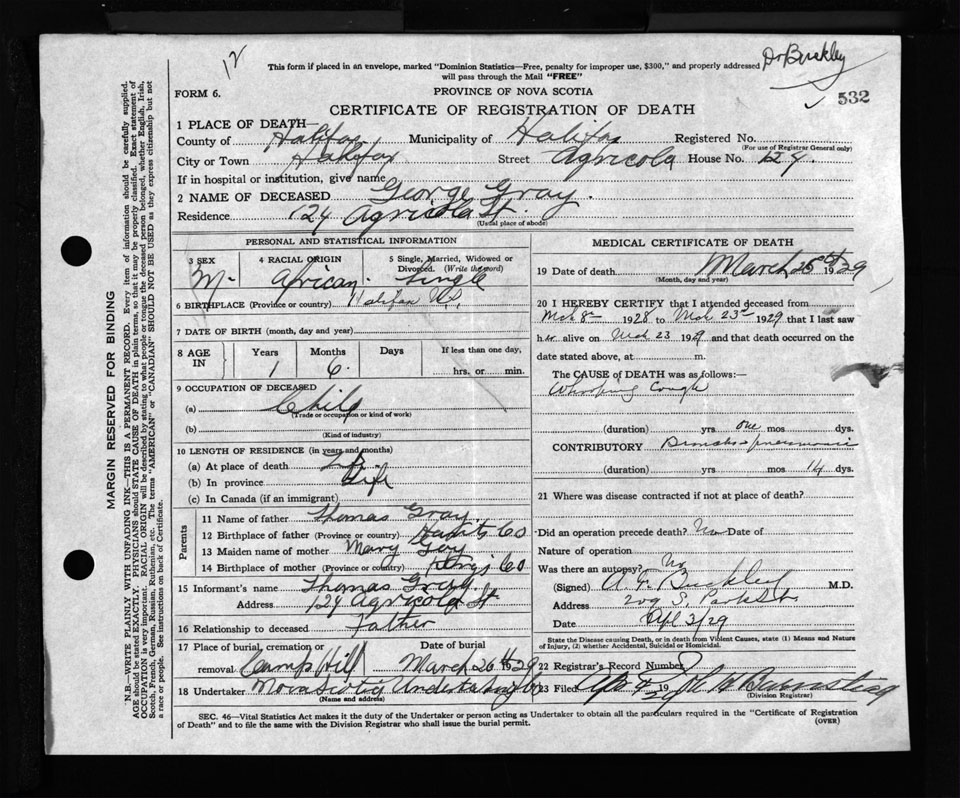 12
This form if placed in an envelope, marked "Dominion Statistics—Free, penalty for improper use, $300," and properly addressed Dr Buckley
will pass through the Mail "FREE"
FORM 6.
PROVINCE OF NOVA SCOTIA
532
CERTIFICATE OF REGISTRATION OF DEATH
1 PLACE OF DEATH—
County of Halifax Municipality of Halifax Registered No.
(For use of Registrar General only)
City or Town Halifax Street Agricola House No. 124.
If in hospital or institution, give name
2 NAME OF DECEASED George Gray.
Residence 124 Agricola St.
(Usual place of abode)
PERSONAL AND STATISTICAL INFORMATION
3 SEX
M.
4 RACIAL ORIGIN
African.
5 Single, Married, Widowed or Divorced. (Write the word)
Single
6 BIRTHPLACE (Province or country) Halifax N.S.
7 DATE OF BIRTH (month, day and year)
8 AGE IN
Years Months Days If less than one day,
1 6. hrs. or min.
9 OCCUPATION OF DECEASED
(a) Child
(Trade or occupation or kind of work)
(b)
(Kind of industry)
10 LENGTH OF RESIDENCE (in years and months)
(a) At place of death
(b) In province Life
(c) In Canada (if an immigrant)
Parents
11 Name of father Thomas Gray.
12 Birthplace of father (Province or country) Hants Co
13 Maiden name of mother Mary
14 Birthplace of mother (Province or country) Kings Co
15 Informant's name Thomas Gray
Address 124 Agricola St
16 Relationship to deceased Father
17 Place of burial, cremation or removal Camp Hill
Date of burial
March 26th 1929
18 Undertaker Nova Scotia Undertaking Co
(Name and address)
MEDICAL CERTIFICATE OF DEATH
19 Date of death March 1929
(Month, day and year)
20 I HEREBY CERTIFY that I attended deceased from
Mch 8th 1928 to Mch 23rd 1929 that I last saw
h alive on Mch 23 1929 and that death occurred on the
date stated above, at m.
The CAUSE of DEATH was as follows:—
Whooping Cough
(duration) yrs one mos dys.
CONTRIBUTORY Broncho pneumonia
(duration) yrs. mos 14 dys.
21 Where was disease contracted if not at place of death?
Did an operation precede death? No Date of
Nature of operation
Was there an autopsy? No
(Signed) A. F. Buckley M.D.
Address 209 S. Park St
Date Apl 3/29
State the Disease causing Death, or in death from Violent Causes, state (1) Means and Nature
of Injury, (2) whether Accidental, Suicidal or Homicidal.
22 Registrar's Record Number
23 Filed Apr 19 29
(Division Registrar)
SEC. 46—Vital Statistics Act makes it the duty of the Undertaker or person acting as Undertaker to obtain all the particulars required in the "Certificate of Registration
of Death" and to file the same with the Division Registrar who shall issue the burial permit.
(OVER)
MARGIN RESERVED FOR BINDING
N.B.—WRITE PLAINLY WITH UNFADING INK—THIS IS A PERMANENT RECORD. Every item of information should be carefully supplied.
AGE should be stated EXACTLY. PHYSICIANS should STATE CAUSE OF DEATH in plain terms, so that it may be properly classified. Exact statement of
OCCUPATION is very important. RACIAL ORIGIN will be described by stating to what people or tongue the deceased person belonged, whether English, Irish,
Scotch, French, German, Russian, Ruthenian, etc. The terms "AMERICAN" or "CANADIAN" SHOULD NOT BE USED as they express citizenship but not
a race or people. See instructions on back of Certificate.